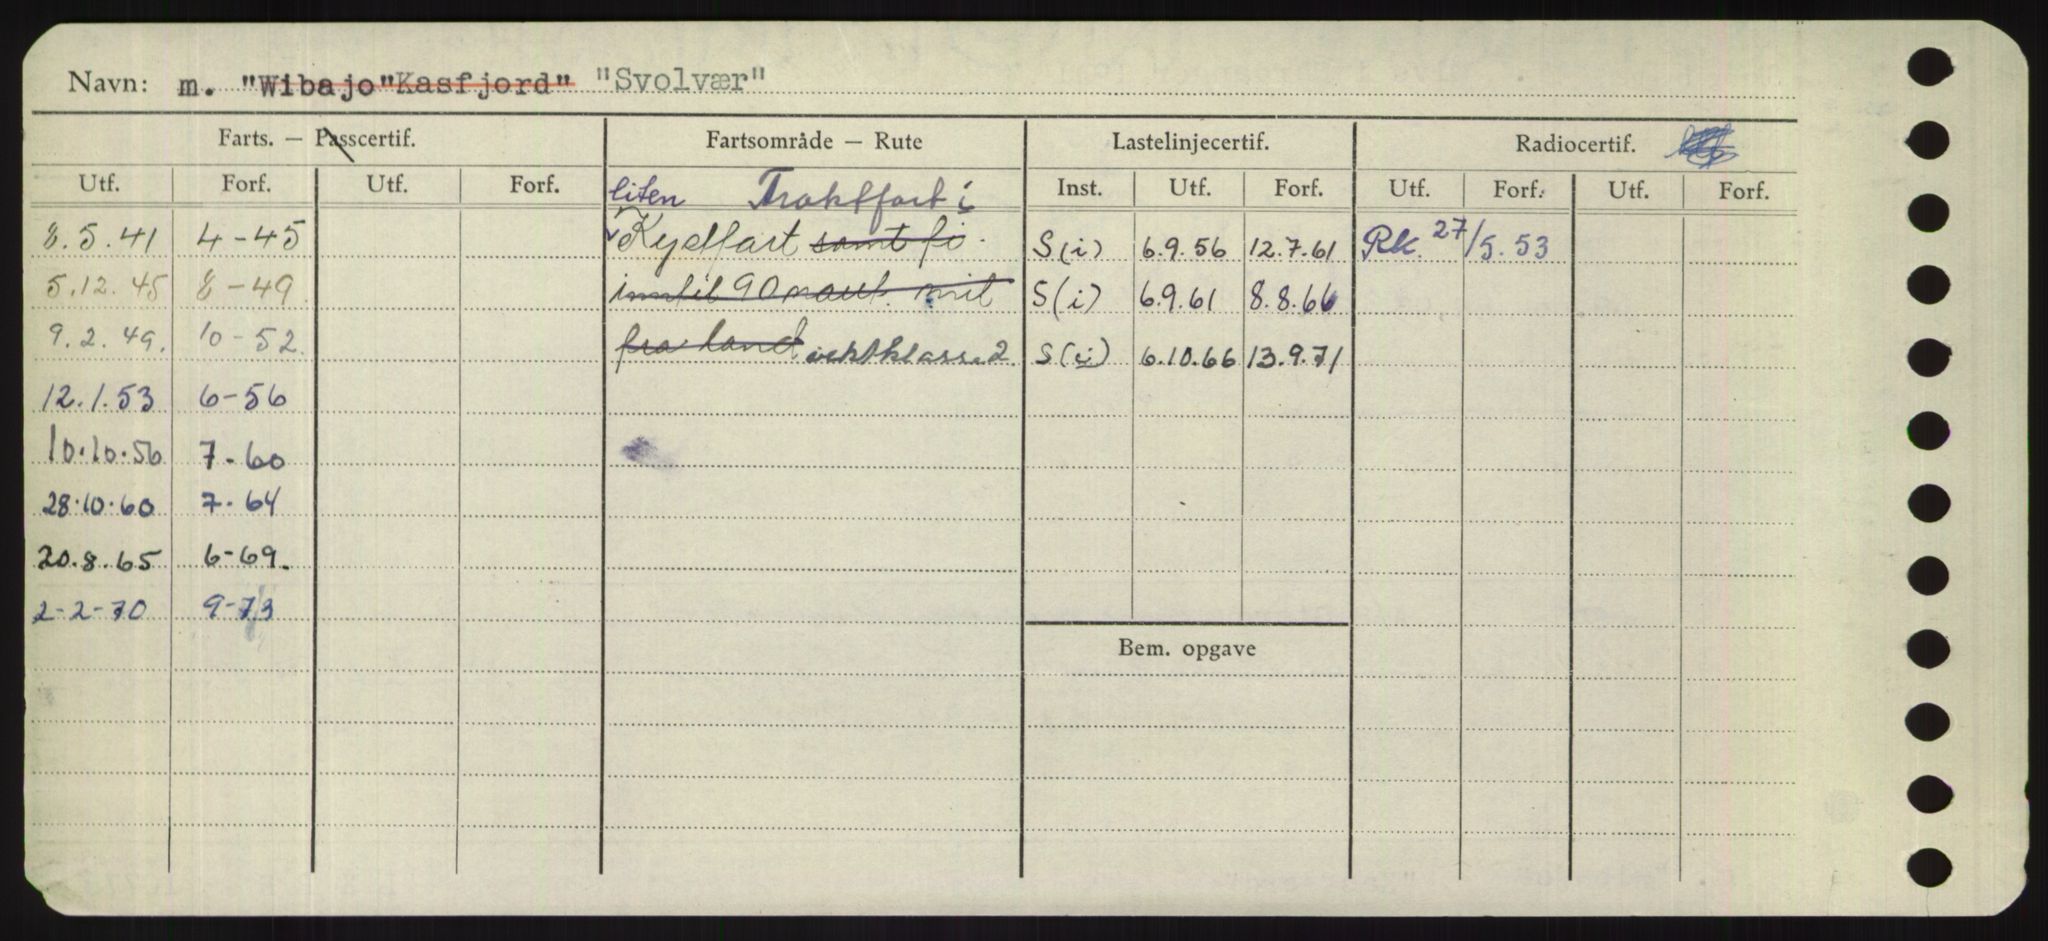 Navn: m. "Wibajo" Kasfjord" "Svolvær"
Farts. — Passcertif. Fartsområde — Rute Lastelinjecertif. Radiocertif.
Utf. Forf. Utf. Forf. liten Fraktfart i Inst. Utf. Forf. Utf. Forf. Utf. Forf.
8.5.41 4-45 Kystfart samt fi S(i) 6.9.56 12.7.61 Rk. 27/5.53
5.12.45 8-49 inntil 90 naut. mil S(i) 6.9.61 8.8.66
9.2.49. 10-52. fra land vektklasse 2. S(i) 6.10.66 13.9.71
12.1.53 6-56
10.10.56 7-60
28.10.60 7-64
20.8.65 6-69.
2-2-70 9-73
Bem. opgave